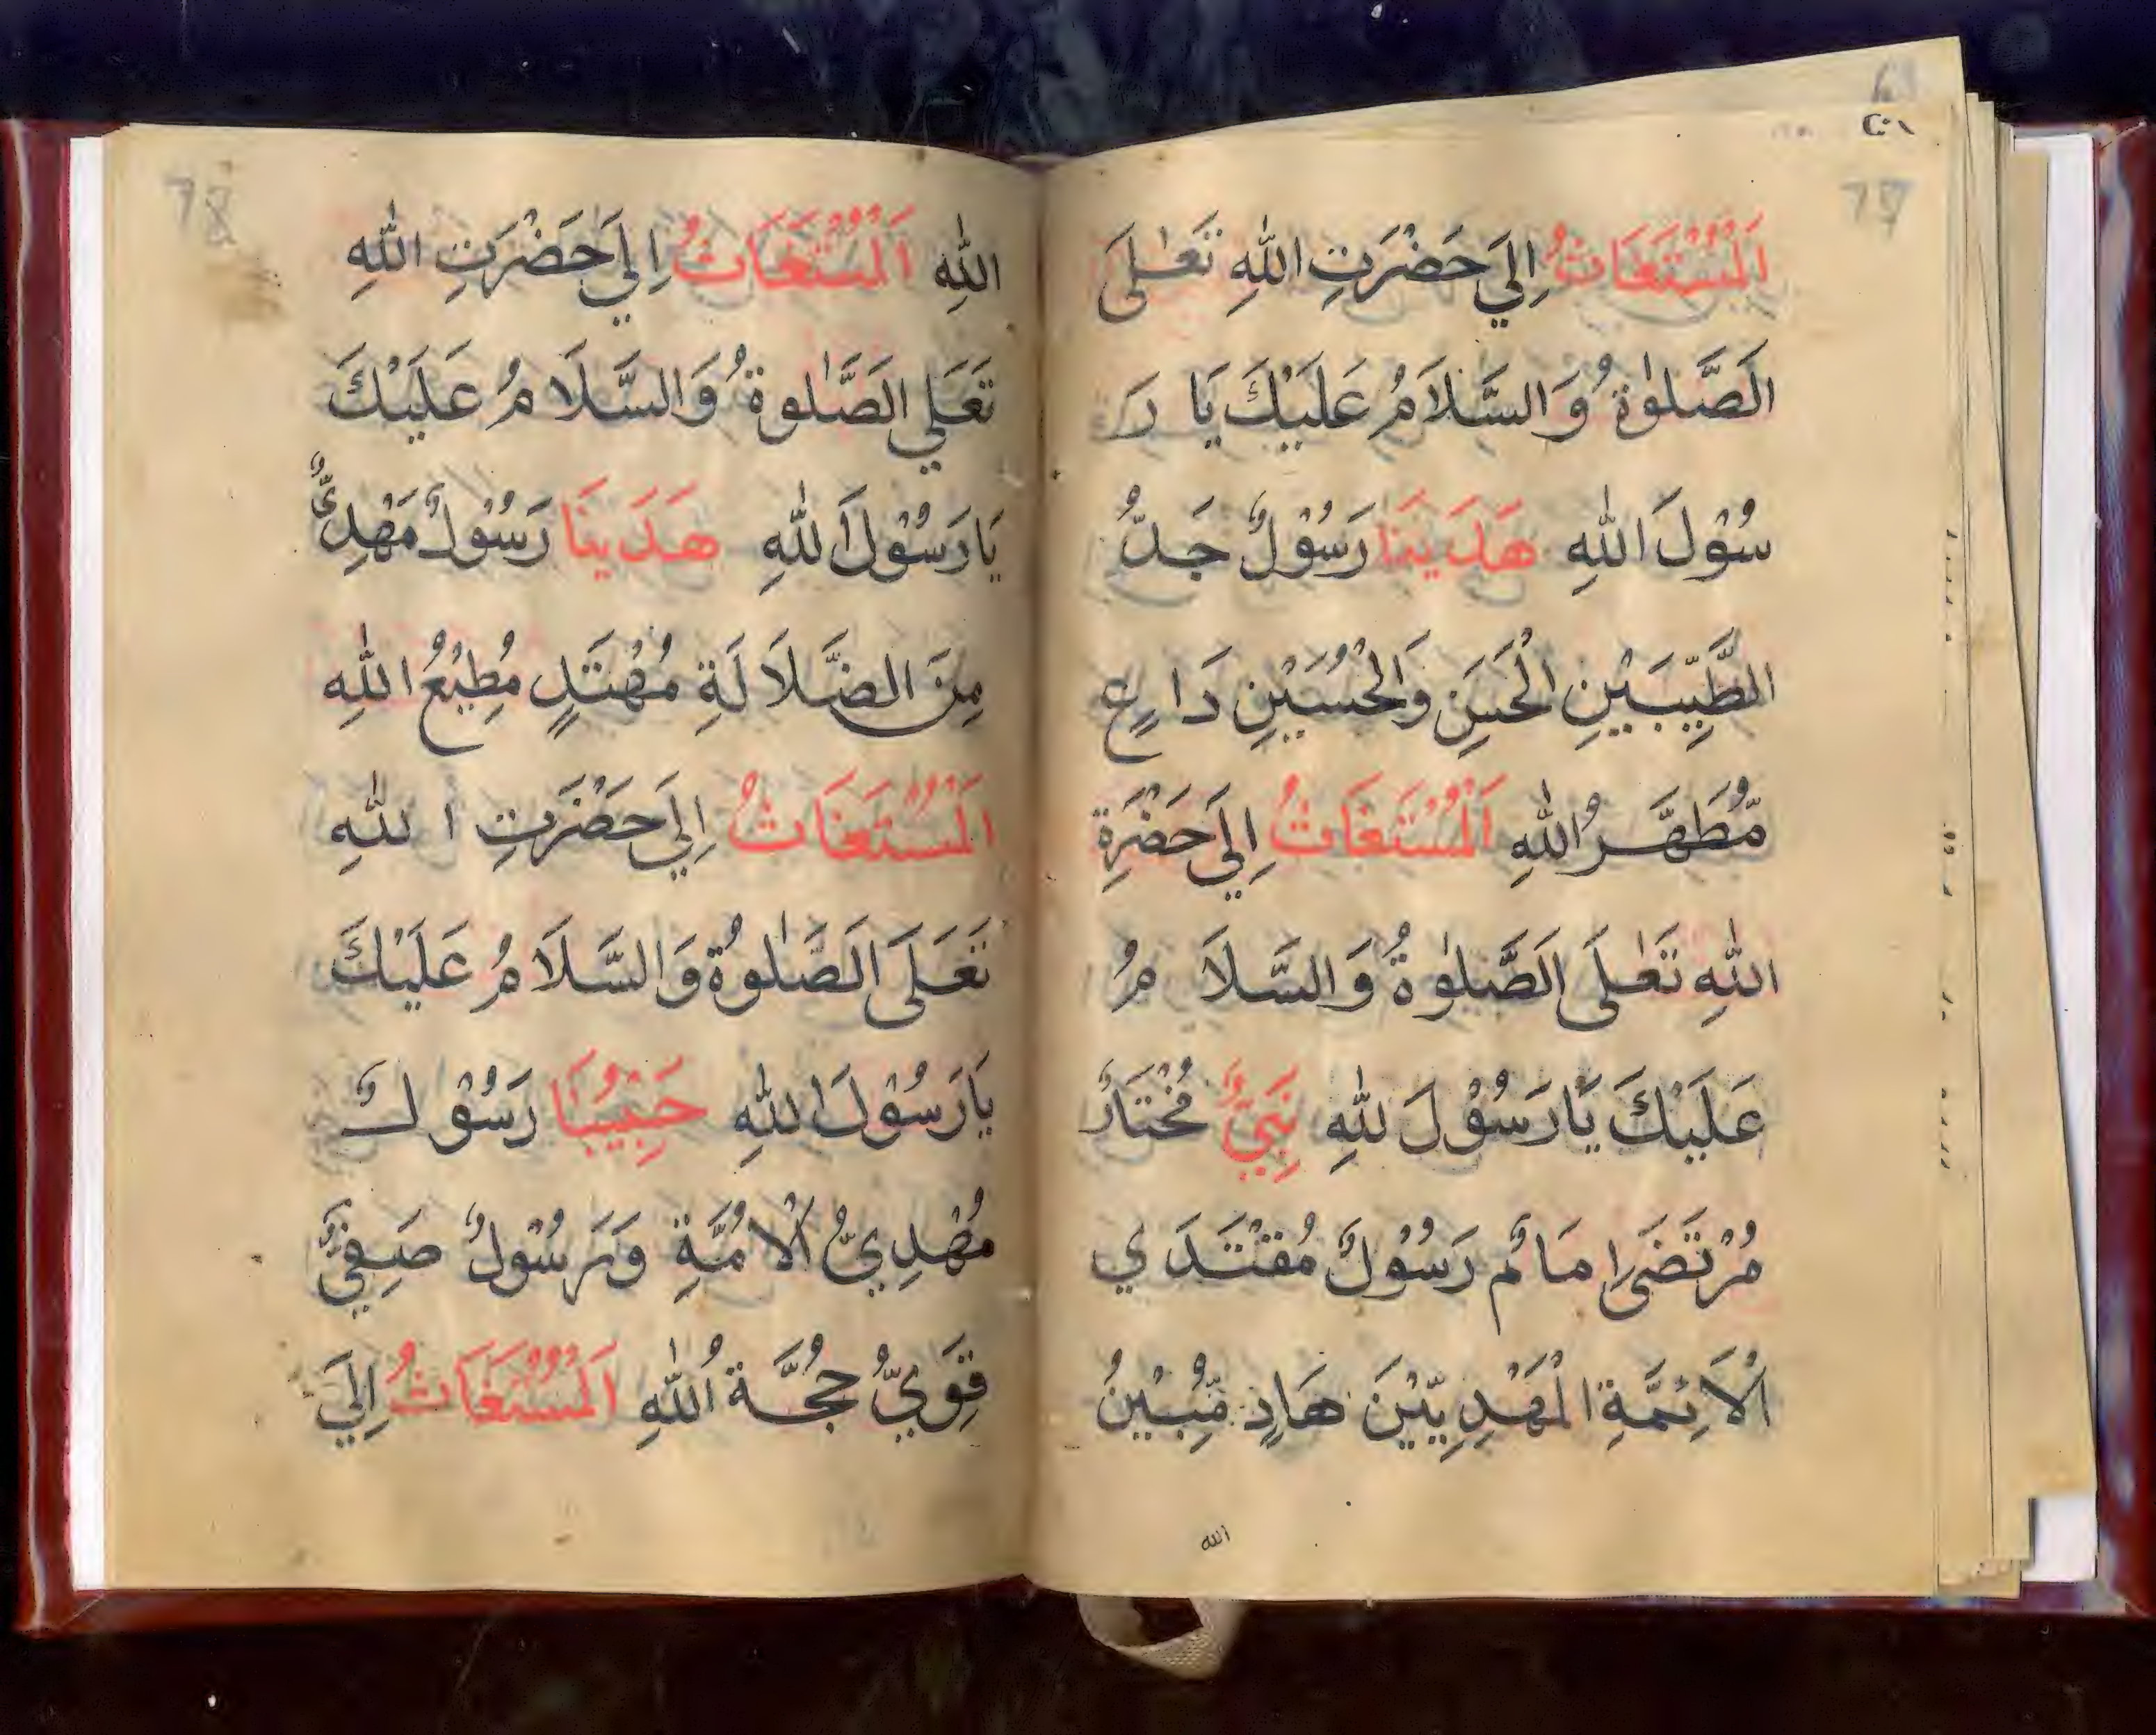 اَلْمُسْتَغَاثُ اِلَيَ حَضْرَتِ اللّٰهِ تَعٰلَى
اَلصَّلٰوةُ وَالسَّلَامُ عَلَيْكَ يَا رَ
سُوْلَ اللّٰهِ هَدَيْنَا رَسُوْلٌ جَدُّ
الطَّيِّبَيْنِ الْحَسَنِ وَالْحُسَيْنِ دَاعٍ
مُّطَهَّرُ اللّٰهِ اَلْمُسْتَغَاثُ اِلَى حَضْرَةِ
اللّٰهِ تَعٰلَى اَلصَّلٰوةُ وَالسَّلَامُ
عَلَيْكَ يَا رَسُوْلَ للّٰهِ نَبِيٌّ مُخْتَارٌ
مُرْتَضَى اِمَامٌ رَسُوْلٌ مُقْتَدَي
اَلْاَئِمَّةِ الْمَهْدِيِّيْنَ هَادٍ مُّبِيْنُ
الله
اللّٰهِ اَلْمُسْتَغَاثُ اِلَيَ حَضْرَتِ اللّٰهِ
تَعَلَي الصَّلٰوةُ وَالسَّلَامُ عَلَيْكَ
يَا رَسُوْلَ اللّٰهِ هَدَيْنَا رَسُوْلٌ مَهْدِيٌّ
مِنَ الضَّلَالَةِ مُهْتَدٍ مُطِيْعُ اللّٰهِ
اَلْمُسْتَغَاثُ اِلَيَ حَضْرَتِ اللّٰهِ
تَعَلَى اَلصَّلٰوةُ وَالسَّلَامُ عَلَيْكَ
يَا رَسُوْلَ اللّٰهِ حَبِيْبُنَا رَسُوْلٌ
مُهْدِيُّ الْاُمَّةِ وَرَسُوْلٌ صَفِيٌّ
قَوِيٌّ حُجَّةُ اللّٰهِ اَلْمُسْتَغَاثُ اِلَيَ
78